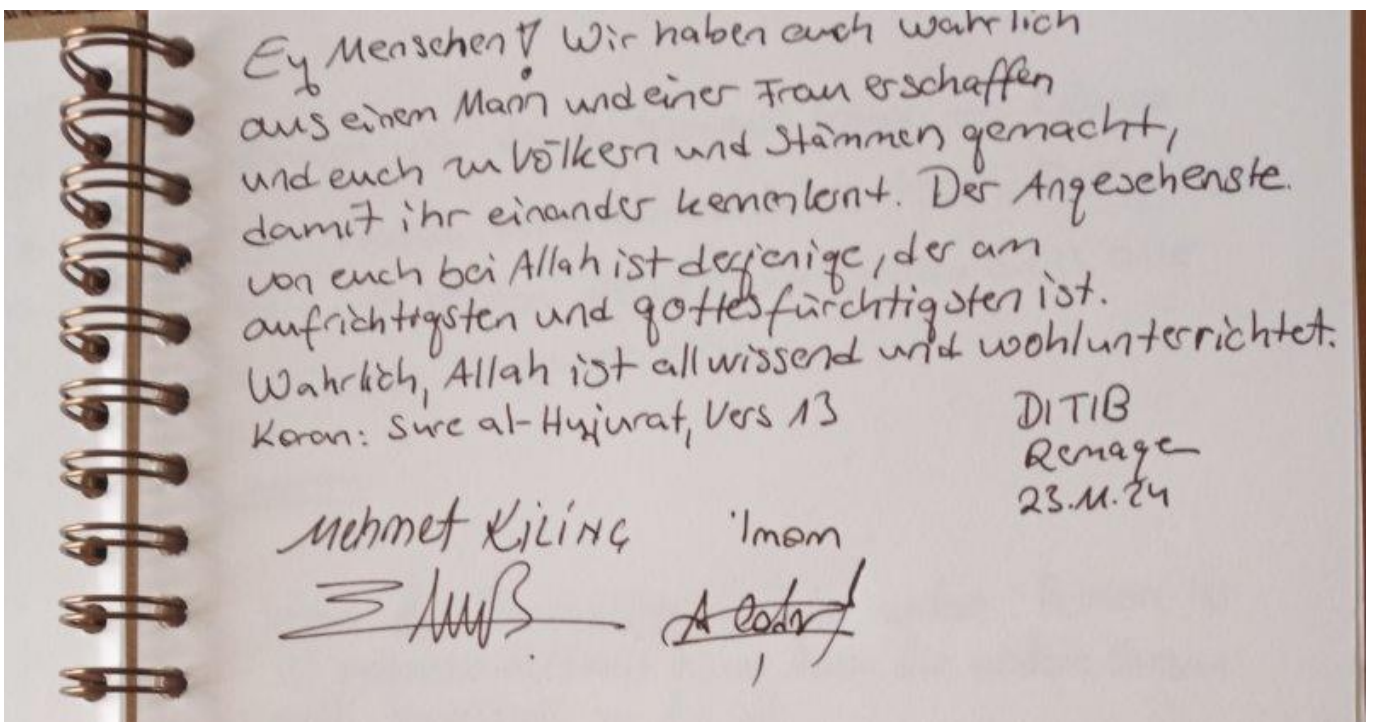 Ey Menschen! Wir haben euch wahrlich
aus einem Mann und einer Frau erschaffen
und euch zu Völkern und Stämmen gemacht,
damit ihr einander kennenlernt. Der Angesehenste
von euch bei Allah ist derjenige, der am
aufrichtigsten und gottesfürchtigsten ist.
Wahrlich, Allah ist allwissend und wohlunterrichtet.
Koran: Sure al-Hujurat, Vers 13
DITIB
Remagen
23.11.24
Mehmet KiLiNÇ imam